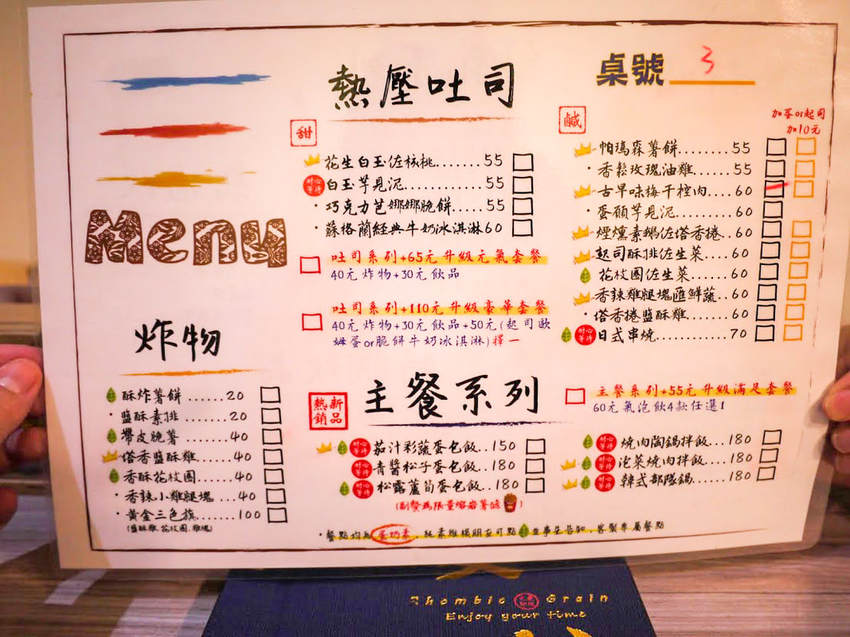 Menu
熱壓吐司
桌號 3
甜
花生白玉佐核桃.......55
耐心等待 白玉芋見泥..........55
·巧克力芭娜娜脆餅....55
·蘇格蘭經典牛奶冰淇淋60
吐司系列+65元升級元氣套餐
40元炸物+30元飲品
吐司系列+110元升級豪華套餐
40元炸物+30元飲品+50元(起司歐
姆蛋or脆餅牛奶冰淇淋)擇一
鹹
加蛋or起司
加10元
帕瑪森薯餅.......55
·香鬆玫瑰油雞.....55
古早味梅干控肉...60
·蛋頭芋見泥.......60
煙燻素鵝佐塔香捲..60
起司酥排佐生菜...60
花枝圓佐生菜....60
香辣雞腿塊匯鮮蔬..60
·塔香捲鹽酥雞.....60
耐心等待 日式串燒.......70
炸物
酥炸薯餅......20
·鹽酥素排......20
帶皮脆薯.....40
塔香鹽酥雞....40
香酥花枝圓....40
·香辣小雞腿塊...40
·黃金三色旗.....100
(鹽酥雞.花枝圓.雞塊)
熱銷新品
主餐系列
主餐系列+55元升級滿足套餐
60元氣泡飲4款任選1
耐心等待 茄汁彩蔬蛋包飯..150
耐心等待 青醬松子蛋包飯..180
耐心等待 松露蘆筍蛋包飯.180
(副餐為限量熔岩薯球)
耐心等待 燒肉石鍋拌飯...180
耐心等待 泡菜燒肉拌飯...180
耐心等待 韓式部隊鍋.....180
·餐點均為蛋奶素,純素維根朋友可點
Rhombic Grain
Enjoy your time